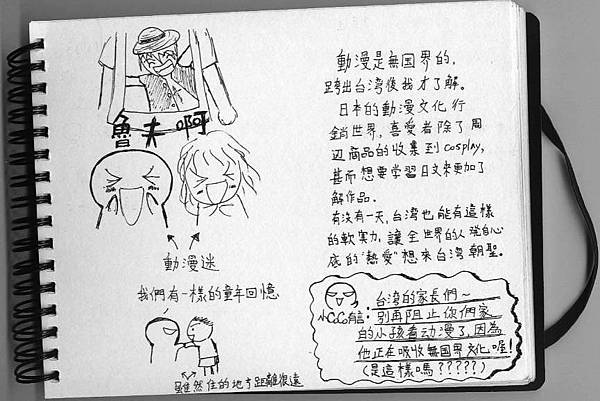 魯夫啊
動漫迷
我們有一樣的童年回憶
雖然住的地方距離很遠
動漫是無國界的,
跨出台湾後我才了解。
日本的動漫文化行
銷世界,喜愛者除了周
邊商品的收集到cosplay,
甚而想要學習日文來更加了
解作品.
有沒有一天,台湾也能有這樣
的軟實力,讓全世界的人発自心
底的"熱愛"想來台湾朝聖。
小CoCo有言:台湾的家長們~
別再阻止你們家
的小孩看动漫了,因為
他正在吸收無國界文化喔!
(是這樣嗎?????)